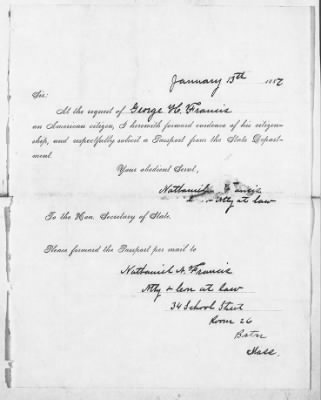 January 13th 1887
Sir:
At the request of George H. Francis
an American citizen, I herewith forward evidence of his citizen-
ship, and respectfully solicit a Passport from the State Depart-
ment.
Your obedient Servt,
Nathaniel A. Francis
Atty at law
To the Hon. Secretary of State.
Please forward the Passport per mail to
Nathaniel A. Francis
Atty & Coun at law
34 School Street
Room 26
Bston
Mass.